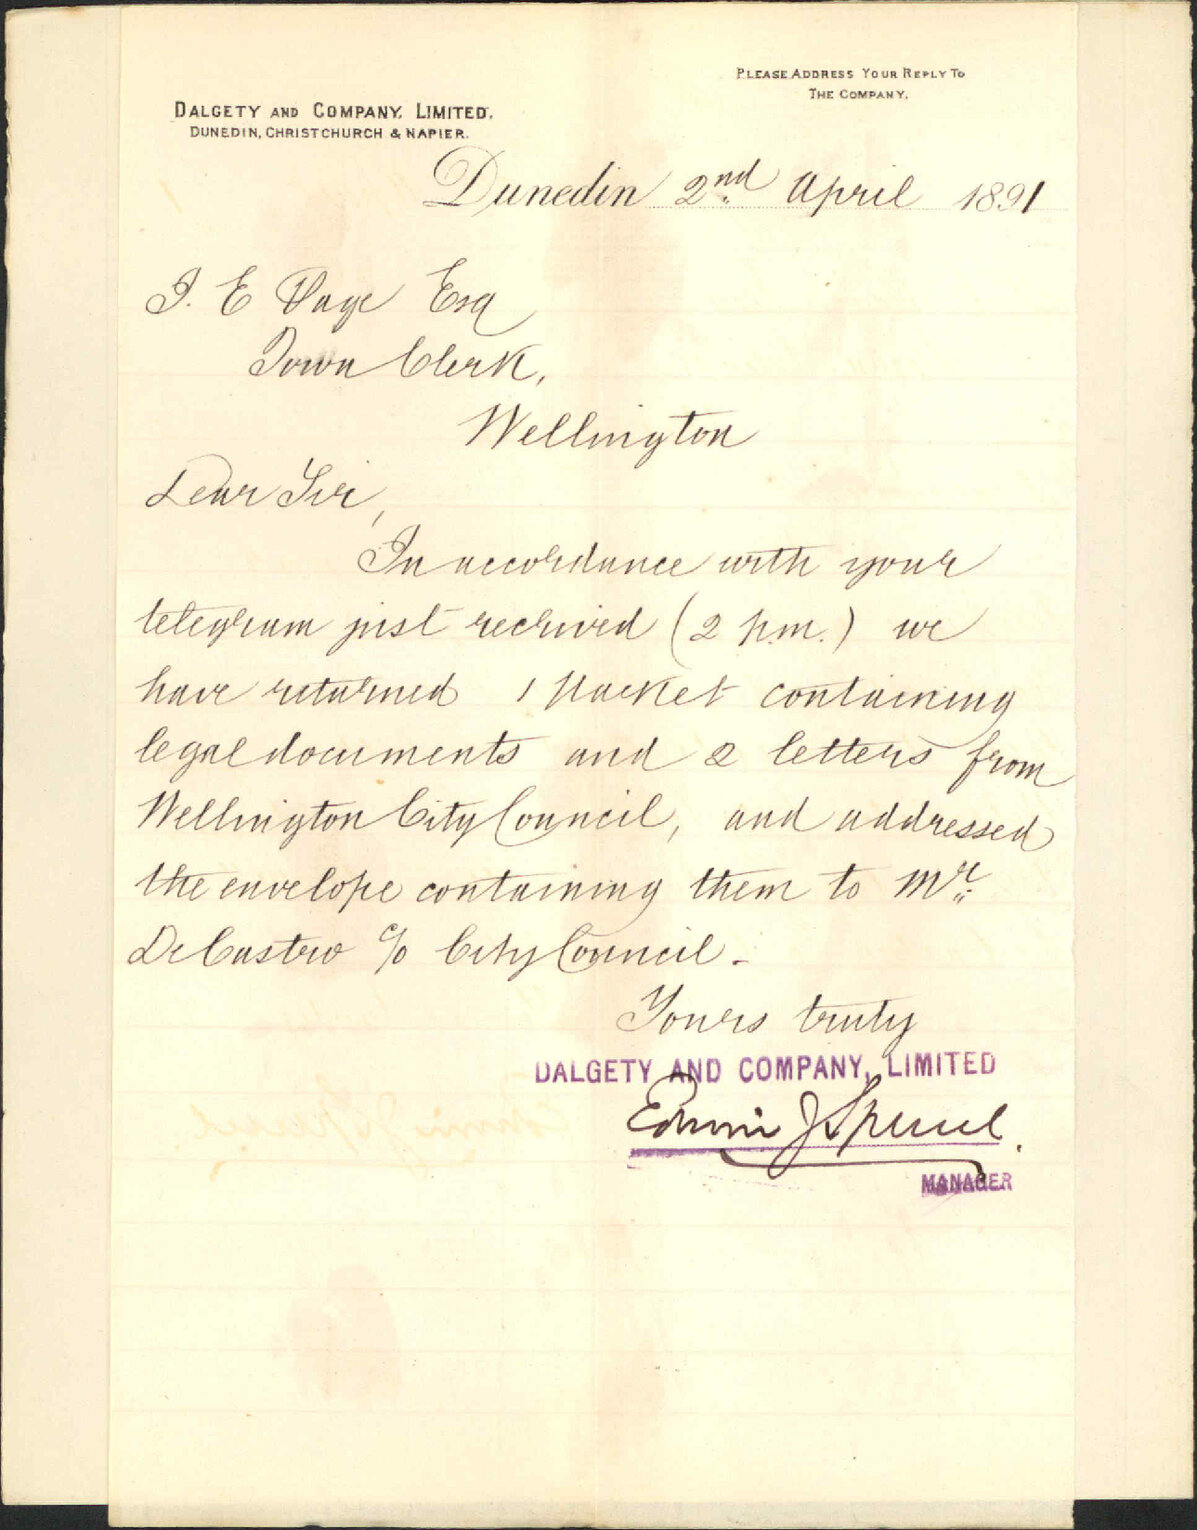 PLEASE ADDRESS YOUR REPLY TO
THE COMPANY.
DALGETY AND COMPANY, LIMITED.
DUNEDIN, CHRISTCHURCH & NAPIER.
Dunedin 2nd April 1891
J. E Page Esq
Town Clerk,
Wellington
Dear Sir,
In accordance with your
telegram just received (2 p.m.) we
have returned 1 packet containing
legal documents and 2 letters from
Wellington City Council, and addressed
the envelope containing them to Mr.
De Castro c/o City Council -
Yours truly
DALGETY AND COMPANY, LIMITED
Edwin J
MANAGER